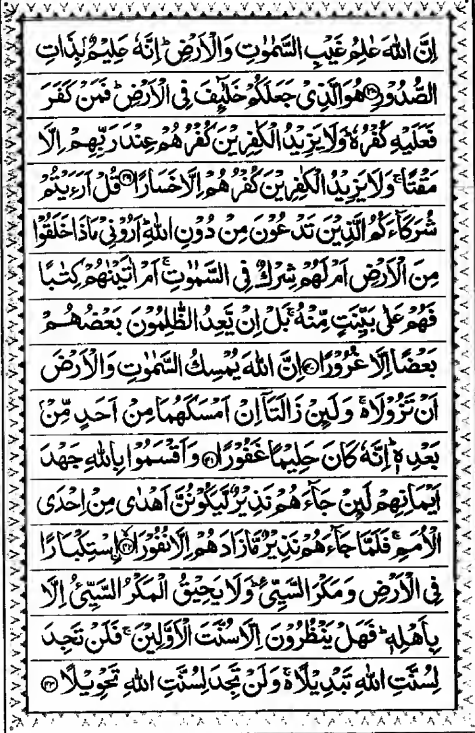 اِنَّ اللّٰهَ عٰلِمُ غَيْبِ السَّمٰوٰتِ وَالْاَرْضِ ؕ اِنَّهٗ عَلِيْمٌۢ بِذَاتِ
الصُّدُوْرِ ﴿۳۸﴾ هُوَ الَّذِيْ جَعَلَكُمْ خَلٰٓئِفَ فِي الْاَرْضِ ؕ فَمَنْ كَفَرَ
فَعَلَيْهِ كُفْرُهٗ ؕ وَلَا يَزِيْدُ الْكٰفِرِيْنَ كُفْرُهُمْ عِنْدَ رَبِّهِمْ اِلَّا
مَقْتًا ۚ وَلَا يَزِيْدُ الْكٰفِرِيْنَ كُفْرُهُمْ اِلَّا خَسَارًا ﴿۳۹﴾ قُلْ اَرَءَيْتُمْ
شُرَكَآءَكُمُ الَّذِيْنَ تَدْعُوْنَ مِنْ دُوْنِ اللّٰهِ ؕ اَرُوْنِيْ مَاذَا خَلَقُوْا
مِنَ الْاَرْضِ اَمْ لَهُمْ شِرْكٌ فِي السَّمٰوٰتِ ۚ اَمْ اٰتَيْنٰهُمْ كِتٰبًا
فَهُمْ عَلٰى بَيِّنَتٍ مِّنْهُ ۚ بَلْ اِنْ يَّعِدُ الظّٰلِمُوْنَ بَعْضُهُمْ
بَعْضًا اِلَّا غُرُوْرًا ﴿۴۰﴾ اِنَّ اللّٰهَ يُمْسِكُ السَّمٰوٰتِ وَالْاَرْضَ
اَنْ تَزُوْلَا ۚ وَلَئِنْ زَالَتَآ اِنْ اَمْسَكَهُمَا مِنْ اَحَدٍ مِّنْۢ
بَعْدِهٖ ؕ اِنَّهٗ كَانَ حَلِيْمًا غَفُوْرًا ﴿۴۱﴾ وَاَقْسَمُوْا بِاللّٰهِ جَهْدَ
اَيْمَانِهِمْ لَئِنْ جَآءَهُمْ نَذِيْرٌ لَّيَكُوْنُنَّ اَهْدٰى مِنْ اِحْدَى
الْاُمَمِ ۚ فَلَمَّا جَآءَهُمْ نَذِيْرٌ مَّا زَادَهُمْ اِلَّا نُفُوْرًا ﴿۴۲﴾ اِسْتِكْبَارًا
فِي الْاَرْضِ وَمَكْرَ السَّيِّئِ ؕ وَلَا يَحِيْقُ الْمَكْرُ السَّيِّئُ اِلَّا
بِاَهْلِهٖ ؕ فَهَلْ يَنْظُرُوْنَ اِلَّا سُنَّتَ الْاَوَّلِيْنَ ۚ فَلَنْ تَجِدَ
لِسُنَّتِ اللّٰهِ تَبْدِيْلًا ۚ وَلَنْ تَجِدَ لِسُنَّتِ اللّٰهِ تَحْوِيْلًا ﴿۴۳﴾